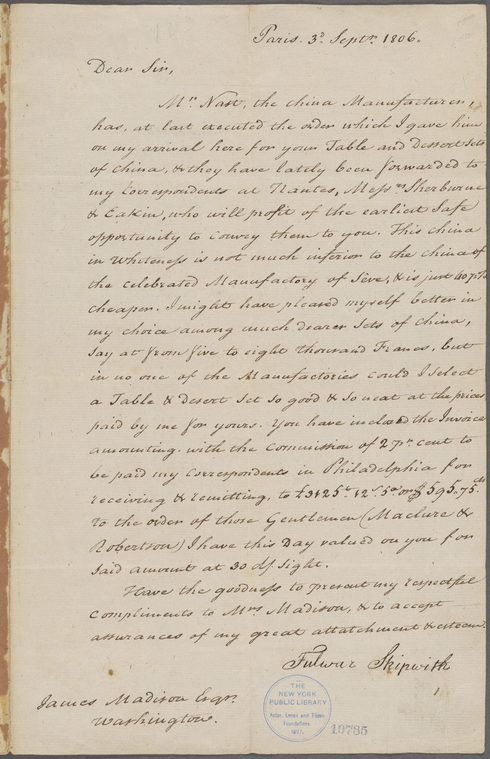 Paris. 3d. Septr. 1806.
Dear Sir,
Mr. Nast, the china Manufacturer,
has, at last executed the order which I gave him
on my arrival here for your Table and Dessert sets
of China, & they have lately been forwarded to
my Correspondents at Nantes, Messrs Sherburne
& Eakin, who will profit of the earliest safe
opportunity to convey them to you. This china
in Whiteness is not much inferior to the china of
the celebrated Manufactory of Sêve, & is just 40 pr Ct
cheaper. I might have pleased myself better in
my choice among much dearer sets of China,
say at from five to eight thousand Francs, but
in no one of the Manufactories could I select
a Table & desert set so good & so neat at the prices
paid by me for yours. You have inclosed the Invoice
amounting with the Commission of 2 pr. cent to
be paid my correspondents in Philadelphia for
receiving & remitting, to
To the order of those Gentlemen (Maclure &
Robertson) I have this Day valued on you for
said amount at 30 ds. sight.
Have the goodness to present my respectful
compliments to Mrs Madison, & to accept
assurances of my great attatchment & esteem
Fulwar Skipwith
James Madison Esqr.
Washington.
THE
NEW YORK
PUBLIC LIBRARY
Astor, Lenox and Tilden
Foundations
10785